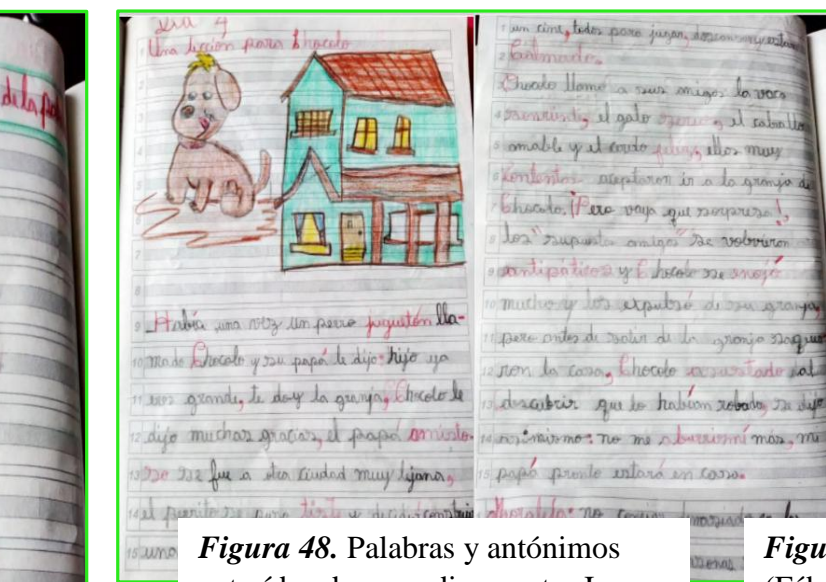 de la
Día 4
Una lección para Chocolo
Había una vez un perro juguetón lla-
mado Chocolo y su papá le dijo: hijo ya
eres grande, te doy la granja, Chocolo le
dijo muchas gracias, el papá amisto-
so se fue a otra ciudad muy lejana,
el perrito se puso triste y decidió
una
un cine, todos para jugar, descansar y estar
Chocolo llamó a sus amigos la vaca
sonriente, el gato el caballo
amable y el cerdo feliz, ellos muy
contentos aceptaron ir a la granja de
Chocolo. ¡Pero vaya que sorpresa!,
los "supuestos amigos" se volvieron
antipáticos y Chocolo se enojó
mucho y los expulsó de su granja,
pero antes de salir de la granja saquea
ron la casa, Chocolo asustado al
descubrir que lo habían robado, se dijo
así mismo: no me más, mi
papá pronto estará en casa.
Moraleja: no
Figura 48. Palabras y antónimos
Figu